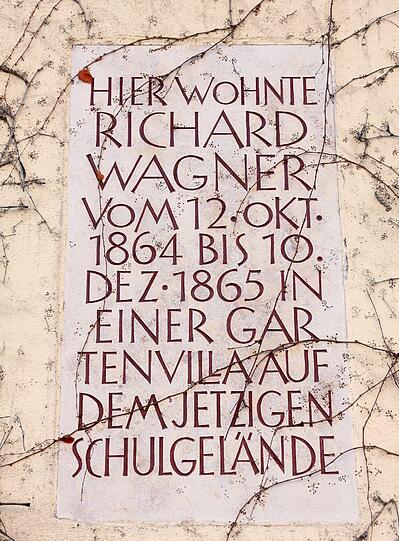 HIER WOHNTE
RICHARD
WAGNER
VOM 12·OKT·
1864 BIS 10.
DEZ·1865 IN
EINER GAR
TENVILLA AUF
DEM JETZIGEN
SCHULGELÄNDE